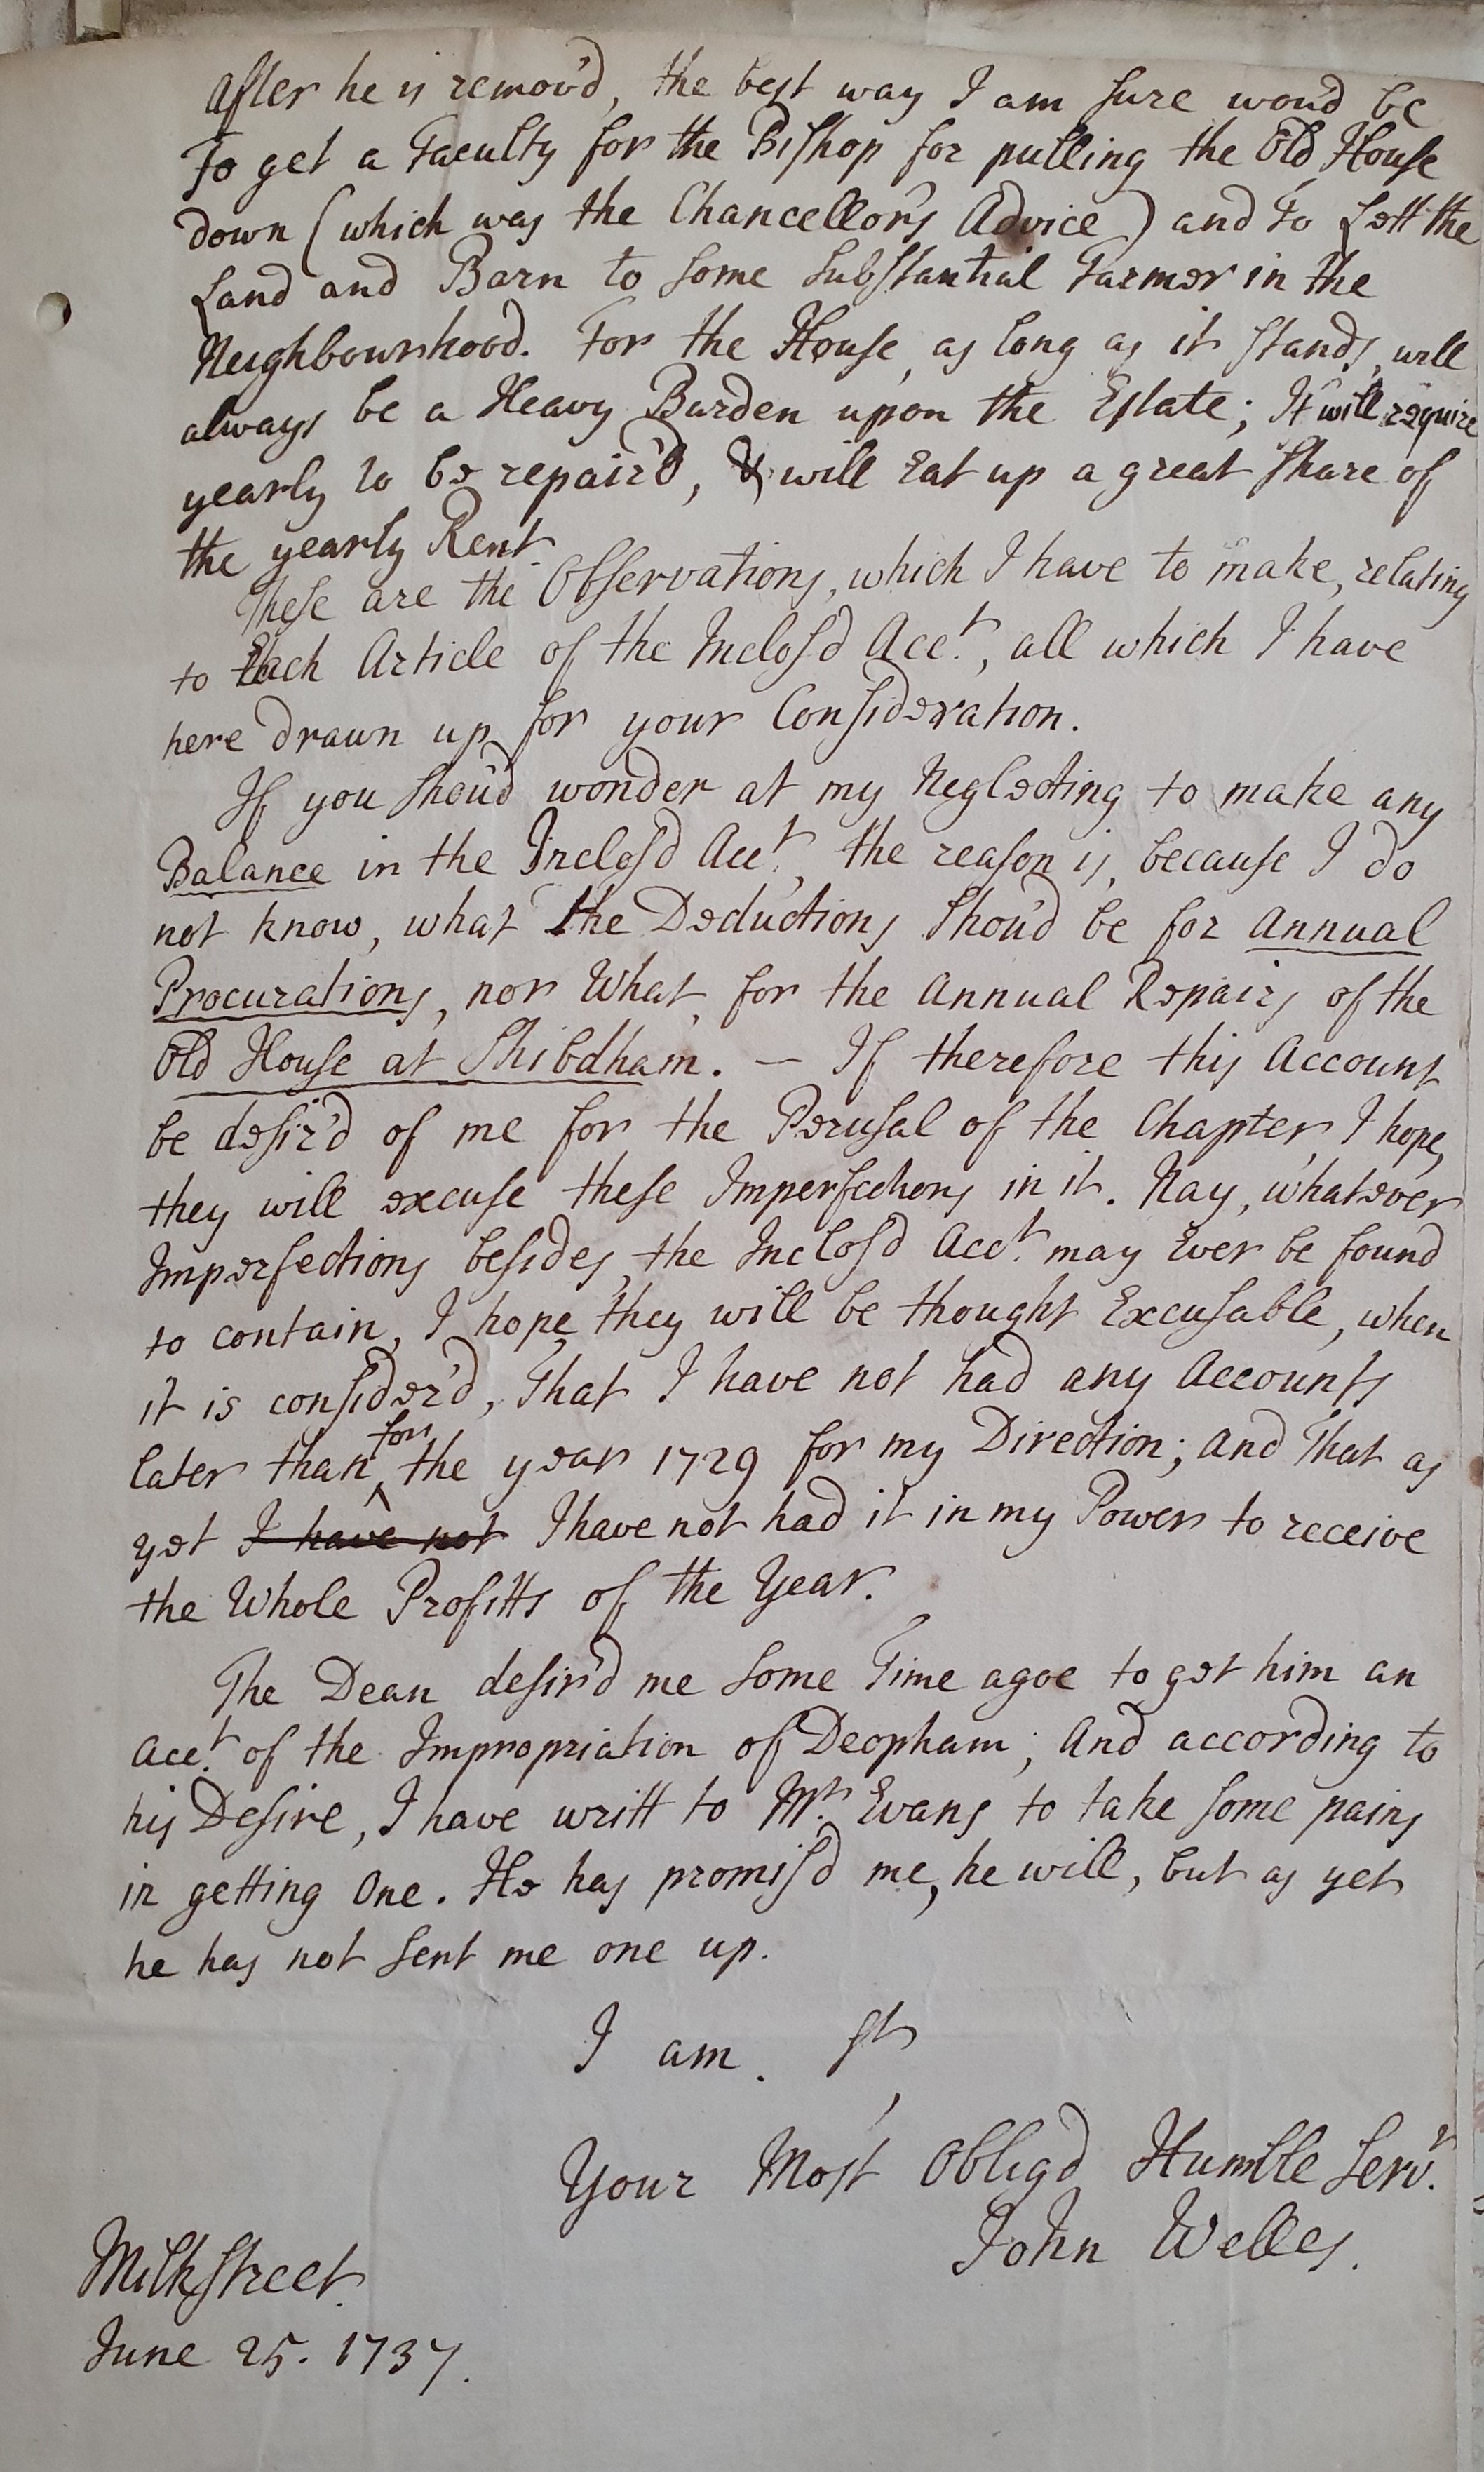 After he is remov'd, the best way I am sure wou'd be
To get a Faculty for the Bishop for pulling the Old House
down (which was the Chancellor's Advice) and to Lett the
Land and Barn to some substantial Farmer in the
Neighbourhood. For the House, as long as it stands, will
always be a Heavy Burden upon the Estate; It will require
yearly to be repair'd, & will Eat up a great share of
the yearly Rent.
These are the Observations, which I have to make, relating
to Each Article of the Inclos'd Acct., all which I have
here drawn up for your Consideration.
If you shou'd wonder at my Neglecting to make any
Balance in the Inclos'd Acct., the reason is, because I do
not know, what the Deductions shou'd be for Annual
Procurations, nor What, for the Annual Repairs of the
Old House at Shibdham. — If therefore this Account
be desir'd of me for the Perusal of the Chapter, I hope,
they will excuse these Imperfections in it. Nay, whatever
Imperfections besides, the Inclos'd Acct. may Ever be found
to contain, I hope, they will be thought Excusable, when
it is consider'd, That I have not had any Accounts
later than for the year 1729 for my Direction; And That as
yet I have not I have not had it in my Power to receive
the Whole Profitts of the Year.
The Dean desir'd me some Time agoe to get him an
Acct. of the Impropriation of Deopham; And according to
his Desire, I have writt to Mr. Evans to take some pains
in getting One. He has promis'd me, he will, but as yet
he has not sent me one up.
I am. Sr,
Your Most Oblig'd Humble Servt.
John Welles.
Milkstreet.
June 25. 1737.